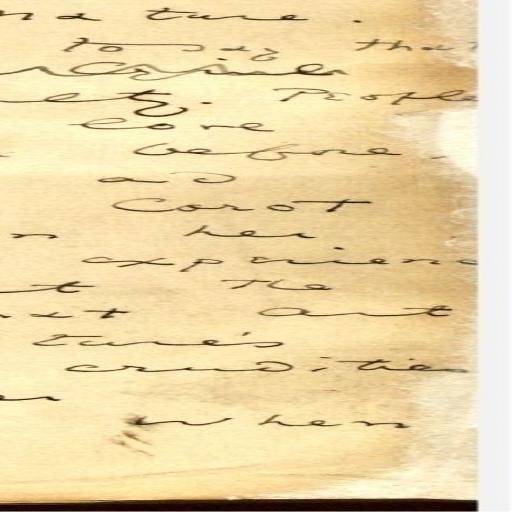 ture.
to say that
ety. People
core
before
as
Corot
n her
experienc
t the
art
ture's
crudities
er
when